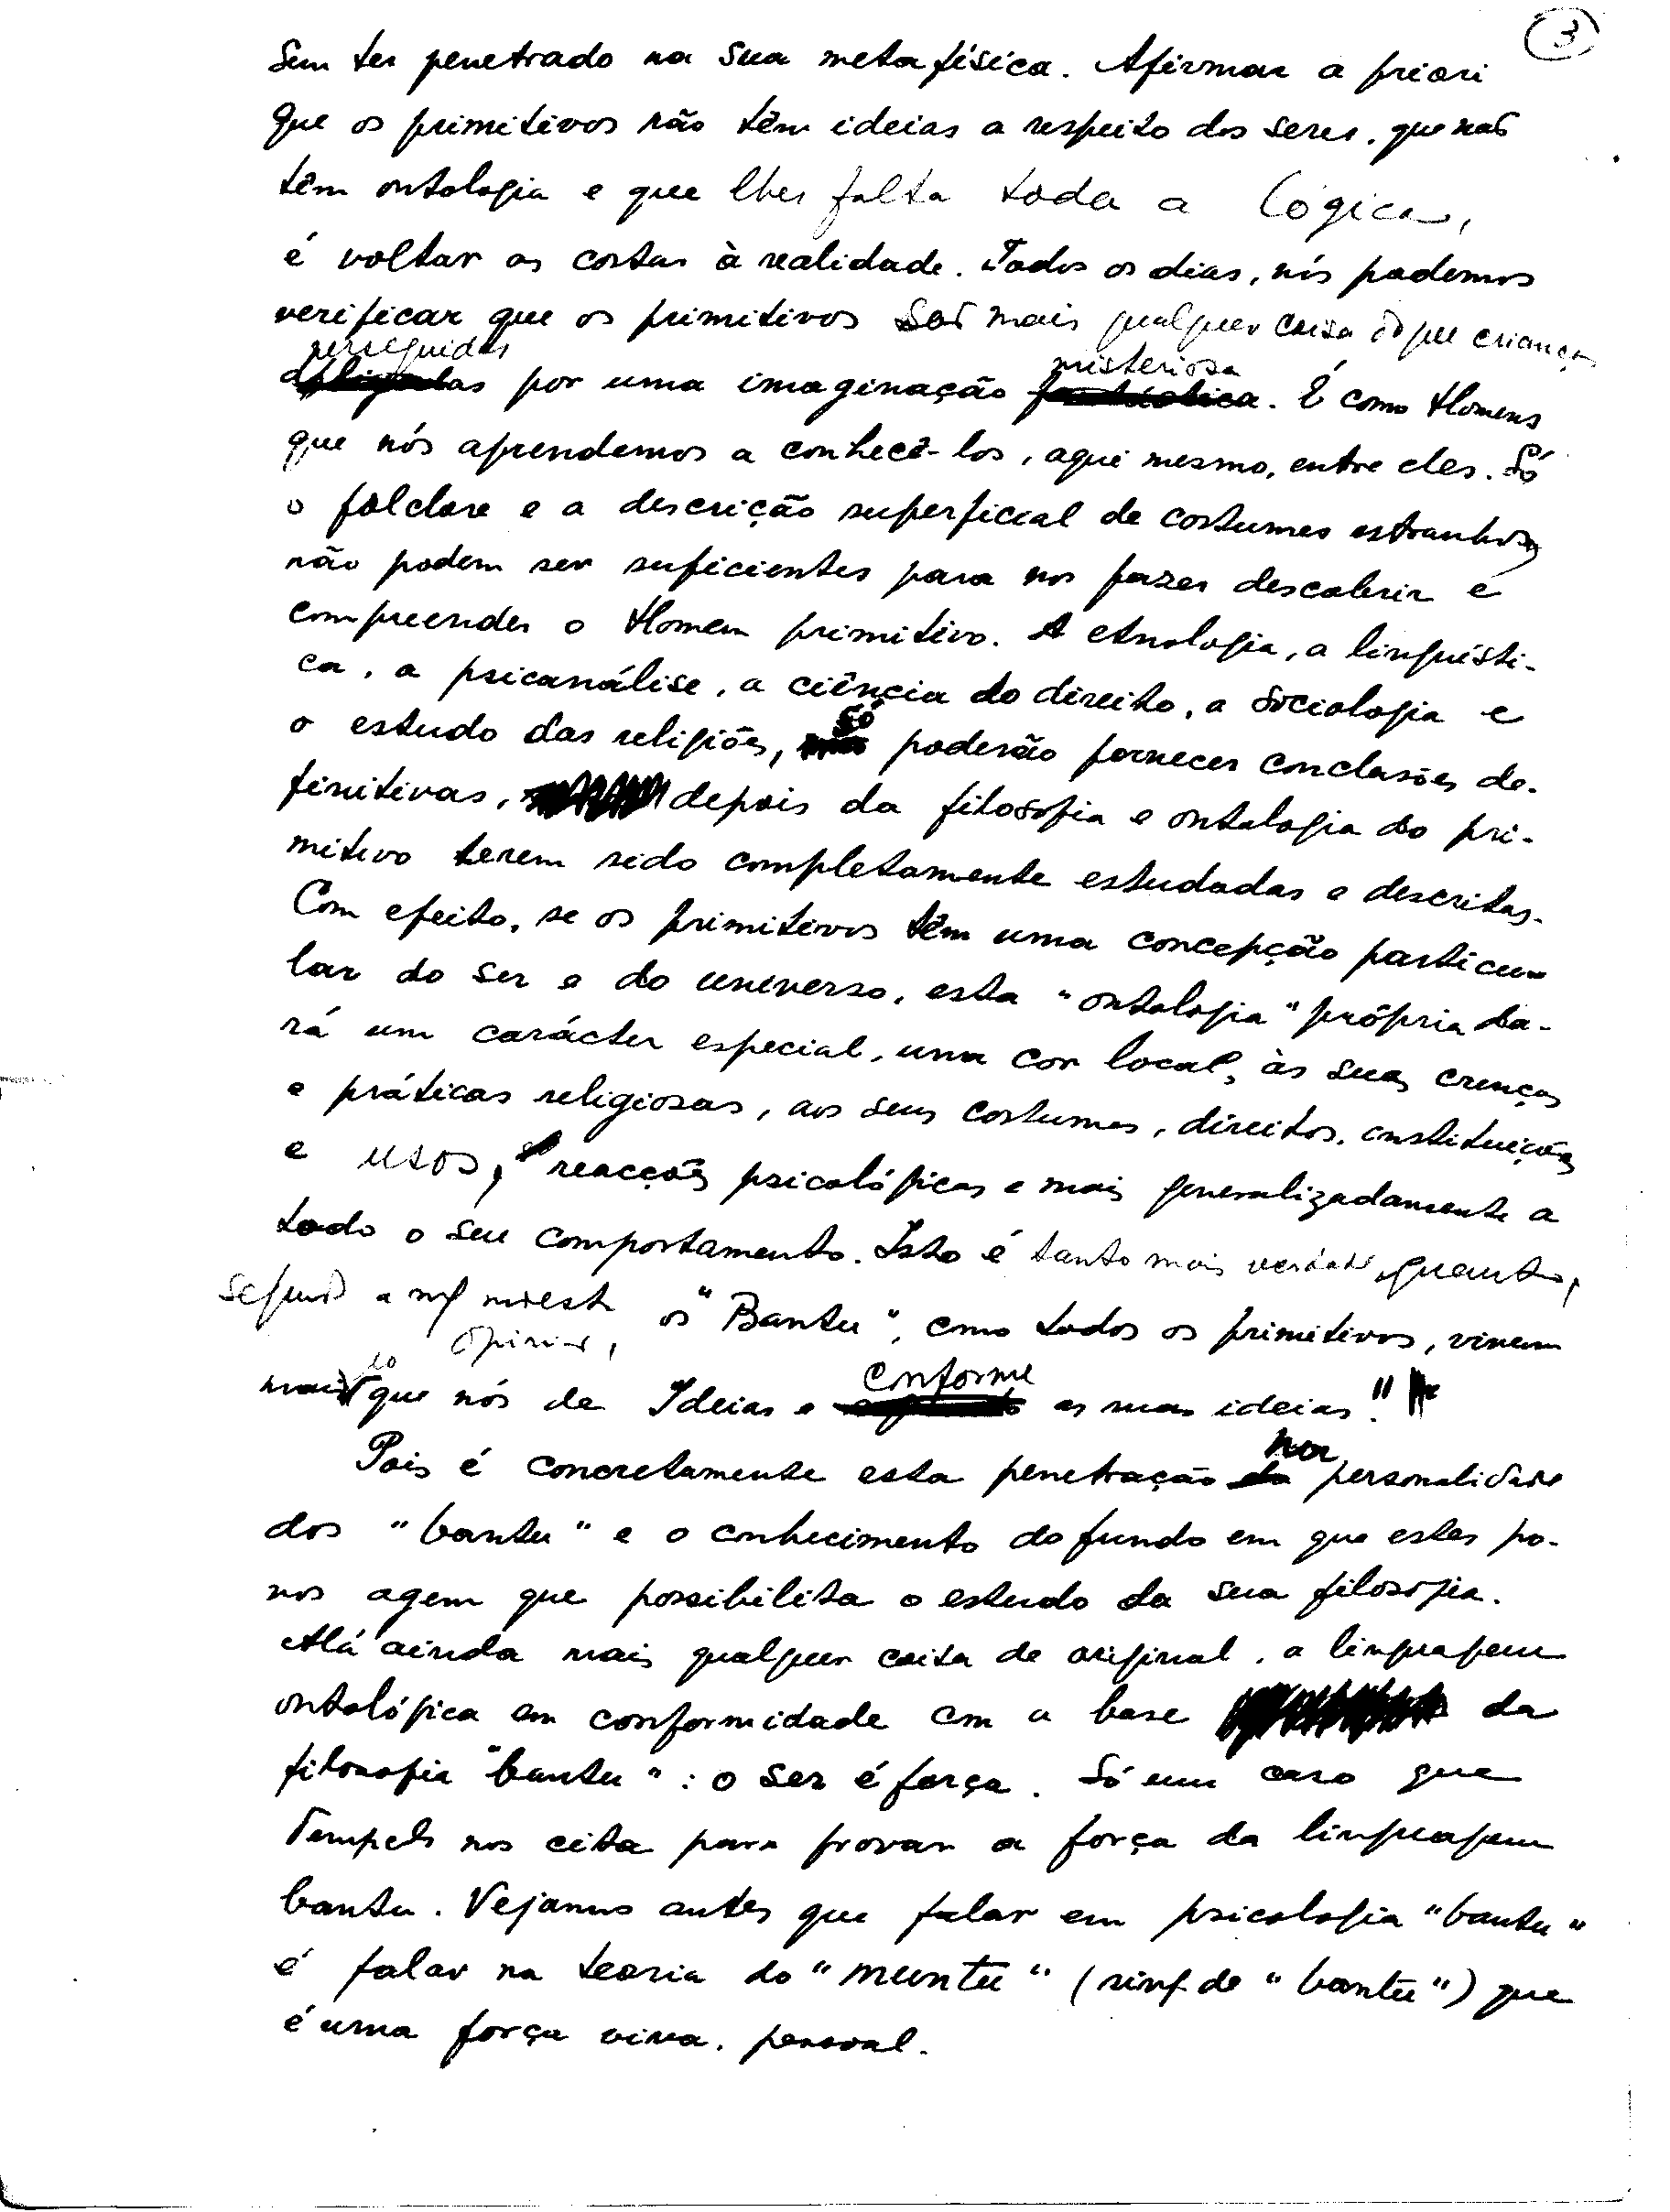 3
Sem ter penetrado na sua metafísica. Afirmar a priori
que os primitivos não têm ideias a respeito dos seres, que não
têm ontologia e que lhes falta toda a lógica,
é voltar as costas à realidade. Todos os dias, nós podemos
verificar que os primitivos são mais qualquer coisa do que crianças
perseguidas por uma imaginação misteriosa. É como Homens
que nós aprendemos a conhecê-los, aqui mesmo, entre eles. Só
o folclore e a descrição superficial de costumes estranhos
não podem ser suficientes para nos fazer descobrir e
compreender o Homem primitivo. A etnologia, a linguísti-
ca, a psicanálise, a ciência do direito, a sociologia e
o estudo das religiões, só poderão fornecer conclusões de-
finitivas, depois da filosofia e ontologia do pri-
mitivo terem sido completamente estudadas e descritas.
Com efeito, se os primitivos têm uma concepção particu-
lar do ser e do universo, esta "ontologia" própria da-
rá um carácter especial, uma cor local, às suas crenças
e práticas religiosas, aos seus costumes, direitos, instituições
e usos, reacções psicológicas e mais generalizadamente a
todo o seu comportamento. Isto é tanto mais verdade, quanto,
segundo a nossa opinião, os "Bantu", como todos os primitivos, vivem
mais do que nós de Ideias e conforme as suas ideias."
Pois é concretamente esta penetração na personalidade
dos "bantu" e o conhecimento do fundo em que estes po-
vos agem que possibilita o estudo da sua filosofia.
Há ainda mais qualquer coisa de original, a linguagem
ontológica em conformidade com a base da
filosofia "bantu": o ser é força. Só um caso que
Tempels nos cita para provar a força da linguagem
bantu. Vejamos antes que falar em psicologia "bantu"
é falar na teoria do "muntu" (sing. de "bantu") que
é uma força viva, pessoal.